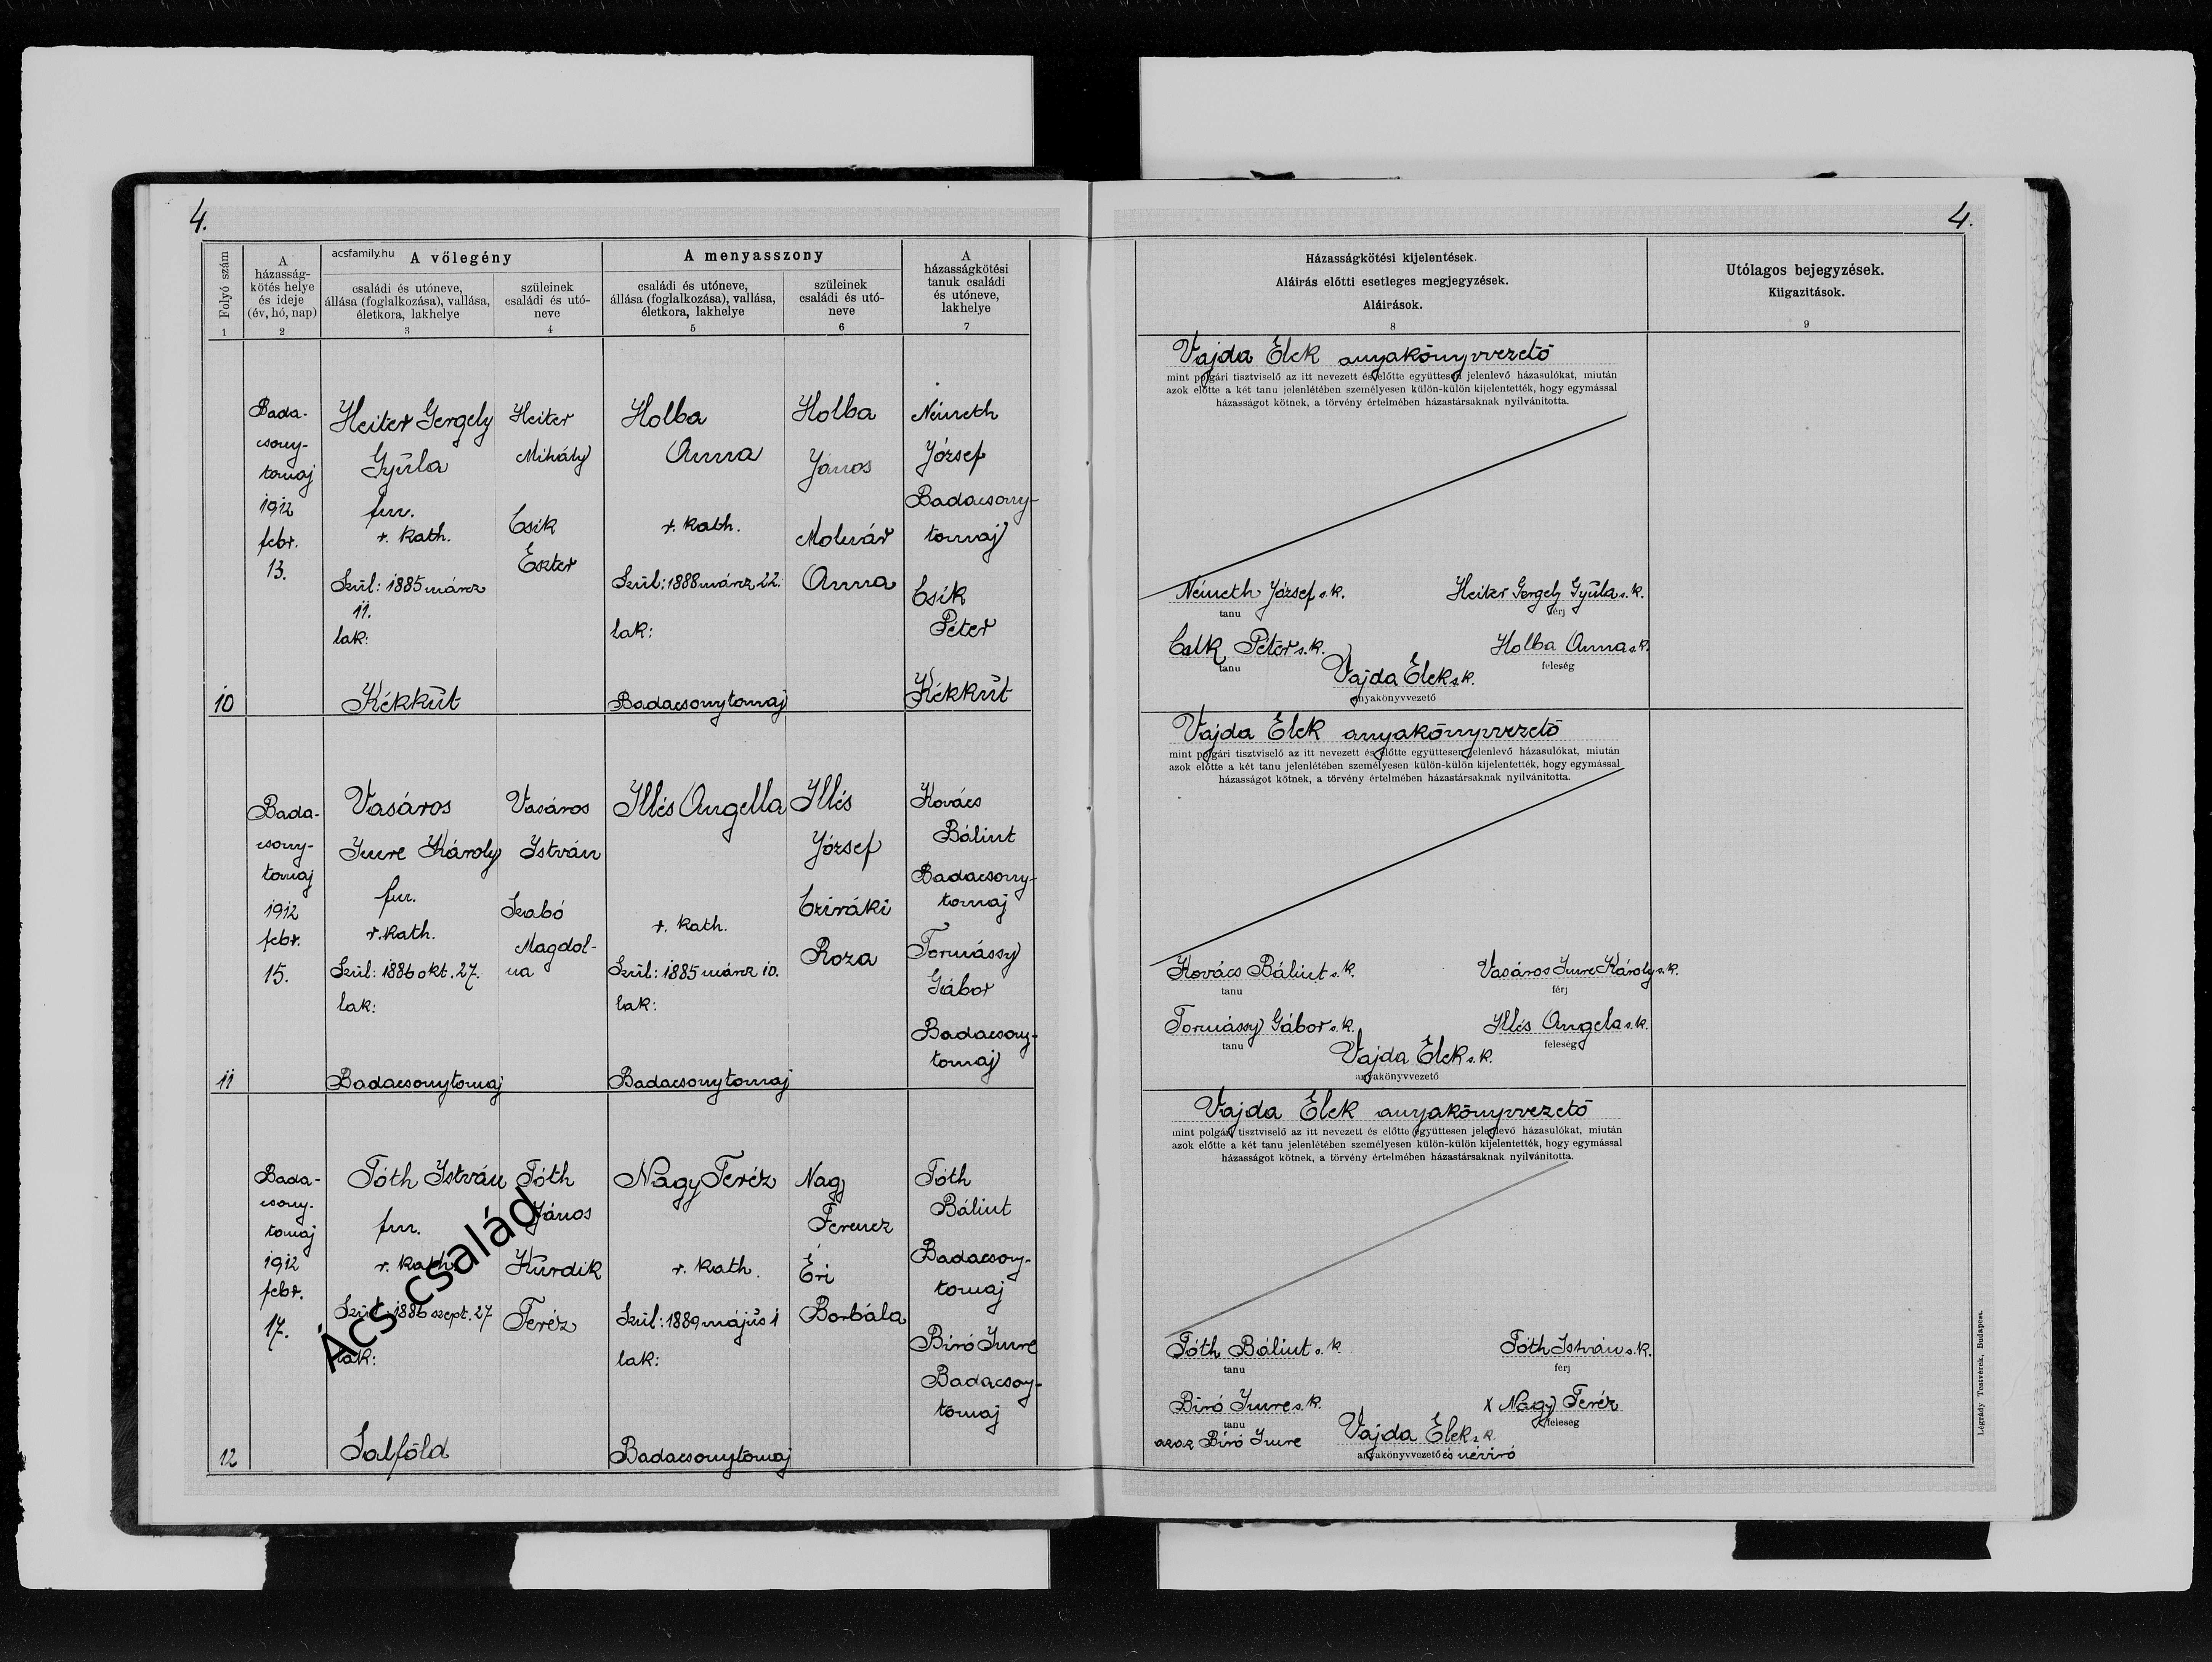 4.
4.
Folyó szám
1
A
házasság-
kötés helye
és ideje
(év, hó, nap)
2
acsfamily.hu
A vőlegény
családi és utóneve,
állása (foglalkozása), vallása,
életkora, lakhelye
3
szüleinek
családi és utó-
neve
4
A menyasszony
családi és utóneve,
állása (foglalkozása), vallása,
életkora, lakhelye
5
szüleinek
családi és utó-
neve
6
A
házasságkötési
tanuk családi
és utóneve,
lakhelye
7
Házasságkötési kijelentések.
Aláirás előtti esetleges megjegyzések.
Aláirások.
8
Utólagos bejegyzések.
Kiigazitások.
9
10
Bada-
csony-
tomaj
1912
febr.
13.
Heiter Gergely
Gyula
fm.
r. kath.
Szül: 1885 márcz
11.
lak:
Kékkút
Heiter
Mihály
Csik
Eszter
Holba
Anna
r. kath.
Szül: 1888 márcz 22.
lak:
Badacsonytomaj
Holba
János
Molnár
Anna
Németh
József
Badacsony-
tomaj
Csik
Péter
Kékkút
Vajda Elek anyakönyvvezető
mint polgári tisztviselő az itt nevezett és előtte együttesen jelenlevő házasulókat, miután
azok előtte a két tanu jelenlétében személyesen külön-külön kijelentették, hogy egymással
házasságot kötnek, a törvény értelmében házastársaknak nyilvánitotta.
Németh József s. k.
tanu
Heiter Gergely Gyula s. k.
férj
Péter s. k.
tanu
Holba Anna s k.
feleség
Vajda Elek s k.
anyakönyvvezető
11
Bada-
csony-
tomaj
1912
febr.
15.
Vasáros
Imre Károly
fm.
r. kath.
Szül: 1886 okt. 27.
lak:
Badacsonytomaj
Vasáros
István
Szabó
Magdol-
na
Illés Angella
r. kath.
Szül: 1885 márcz 10.
lak:
Badacsonytomaj
Illés
József
Cziráki
Roza
Kovács
Bálint
Badacsony-
tomaj
Tormássy
Gábor
Badacsony-
tomaj
Vajda Elek anyakönyvvezető
mint polgári tisztviselő az itt nevezett és előtte együttesen jelenlevő házasulókat, miután
azok előtte a két tanu jelenlétében személyesen külön-külön kijelentették, hogy egymással
házasságot kötnek, a törvény értelmében házastársaknak nyilvánitotta.
Kovács Bálint s. k.
tanu
Vasáros Imre Károly s. k.
férj
Tormássy Gábor s. k.
tanu
Illés Angela s. k.
feleség
Vajda Elek s. k.
anyakönyvvezető
12
Bada-
csony-
tomaj
1912
febr.
17.
Tóth István
fm.
r. kath.
Szül: 1886 szept. 27
lak:
Salföld
Ács család
Tóth
János
Kurdik
Teréz
Nagy Teréz
r. kath.
Szül: 1889 május 1
lak:
Badacsonytomaj
Nagy
Ferencz
Éri
Borbála
Tóth
Bálint
Badacsony-
tomaj
Biró Imre
Badacsony-
tomaj
Vajda Elek anyakönyvvezető
mint polgári tisztviselő az itt nevezett és előtte együttesen jelenlevő házasulókat, miután
azok előtte a két tanu jelenlétében személyesen külön-külön kijelentették, hogy egymással
házasságot kötnek, a törvény értelmében házastársaknak nyilvánitotta.
Tóth Bálint s. k.
tanu
Tóth István s. k.
férj
Biró Imre s. k.
tanu
x Nagy Teréz
feleség
azaz Biró Imre
Vajda Elek s. k.
anyakönyvvezető és névíró
Légrády Testvérek, Budapest.